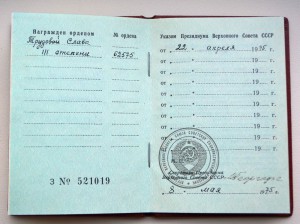 Награжден орденом № ордена
Трудовой Славы
III степени 62575
З № 521019
Указом Президиума Верховного Совета СССР
от 22 апреля 1975 г.
от 19 г.
от 19 г.
от 19 г.
от 19 г.
от 19 г.
от 19 г.
от 19 г.
от 19 г.
М. П.
Секретарь Президиума
Верховного Совета СССР
8 мая 1975 г.